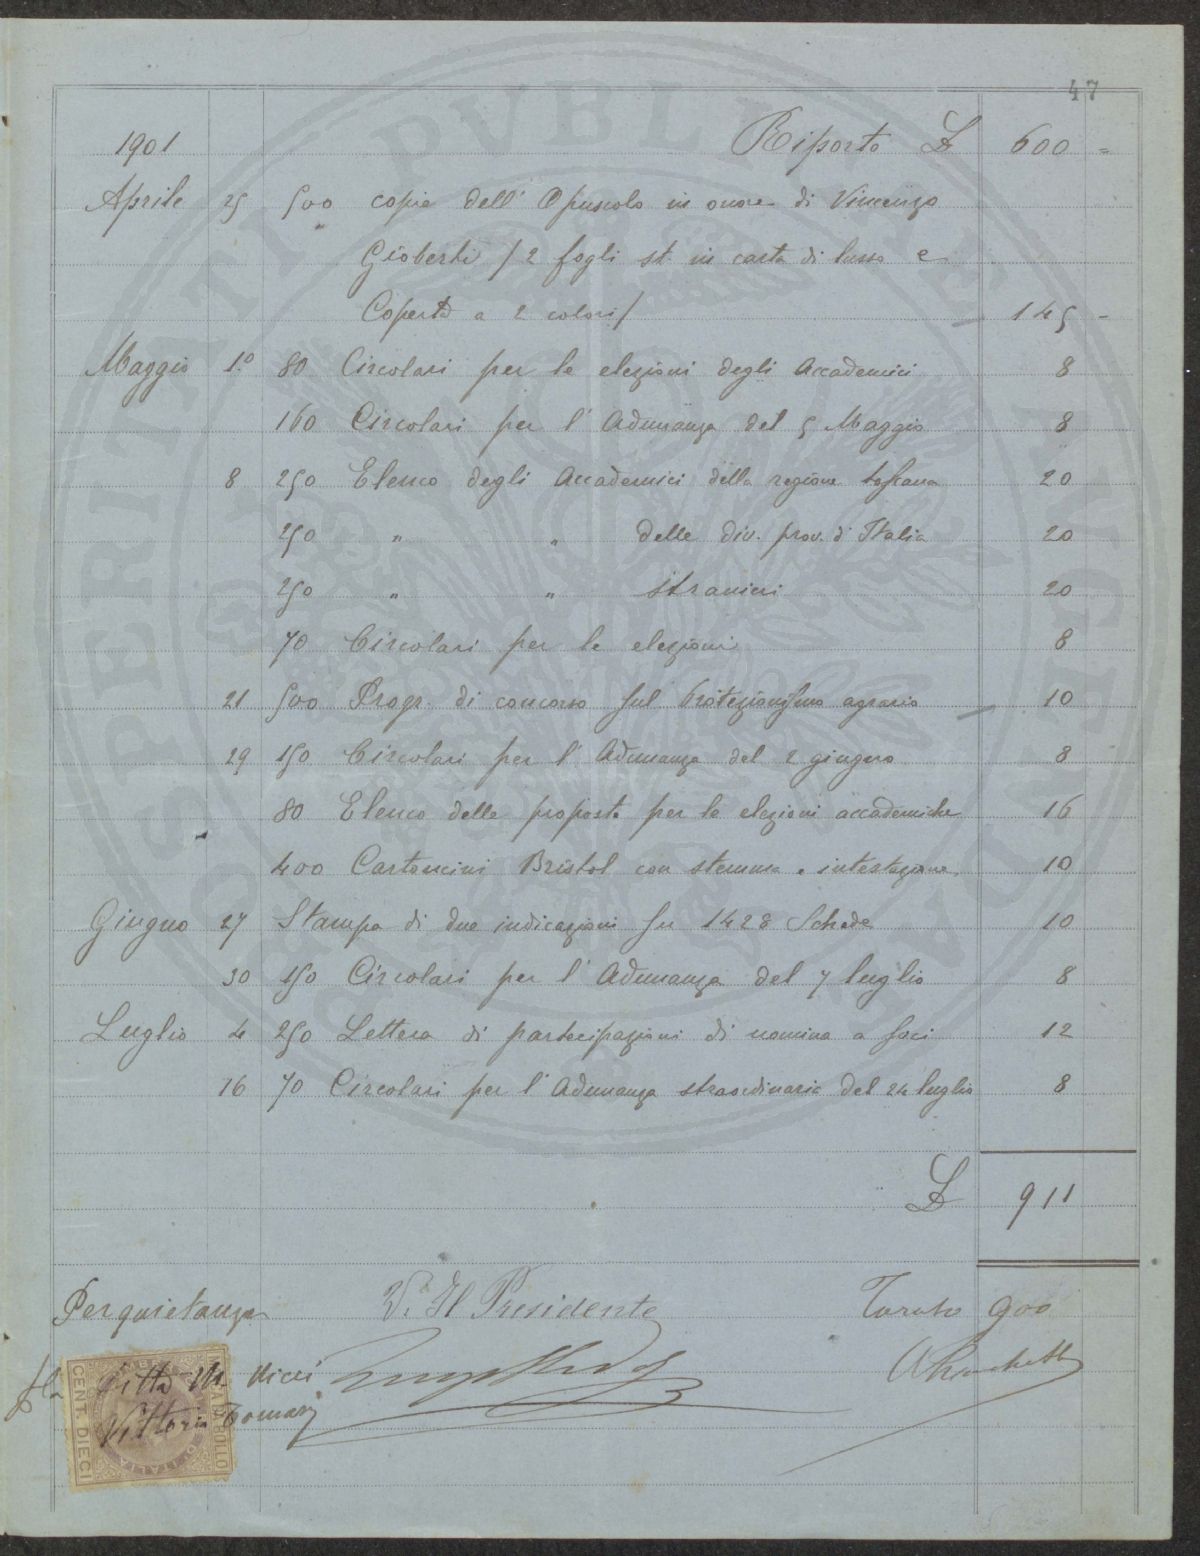 47
1901 Riporto L 600 =
Aprile 25 500 copie dell' Opuscolo in onore di Vincenzo
Gioberti / 2 fogli st. in carta di lusso e
Coperta a 2 colori / 145 -
Maggio 1.º 80 Circolari per le elezioni degli Accademici 8
160 Circolari per l' Adunanza del 5 Maggio 8
8 250 Elenco degli Accademici della regione toscana 20
250 " " delle div. prov. d' Italia 20
250 " " stranieri 20
70 Circolari per le elezioni 8
21 500 Progr. di concorso sul Protezionismo agrario 10
29 150 Circolari per l' Adunanza del 2 giugno 8
80 Elenco delle proposte per le elezioni accademiche 16
400 Cartoncini Bristol con stemma e intestazione 10
Giugno 27 Stampa di due indicazioni su 1428 Schede 10
30 150 Circolari per l' Adunanza del 7 luglio 8
Luglio 4 250 Lettera di partecipazioni di nomina a soci 12
16 70 Circolari per l' Adunanza straordinaria del 24 luglio 8
L 911
Per quietanza V. Il Presidente 900
Ditta M. Ricci
Vittorio
CENT. DIECI
BOLLO
D'ITALIA
PROSPERITATI PVBLICAE AVGENDAE